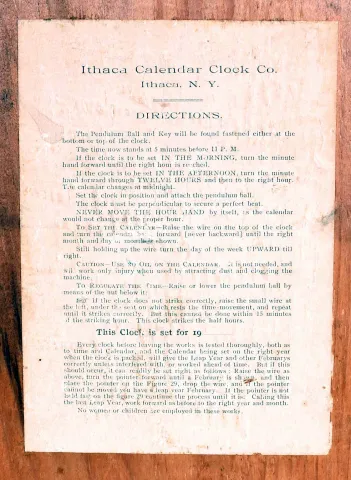 Ithaca Calendar Clock Co.
Ithaca, N. Y.
DIRECTIONS.
The Pendulum Ball and Key will be found fastened either at the
bottom or top of the clock.
The time now stands at 5 minutes before 11 P. M.
If the clock is to be set IN THE MORNING, turn the minute
hand forward until the right hour is reached.
If the clock is to be set IN THE AFTERNOON, turn the minute
hand forward through TWELVE HOURS and then to the right hour.
The calendar changes at midnight.
Set the clock in position and attach the pendulum ball.
The clock must be perpendicular to secure a perfect beat.
NEVER MOVE THE HOUR HAND by itself, as the calendar
would not change at the proper hour.
To Set the Calendar—Raise the wire on the top of the clock
and turn the calendar forward (never backward) until the right
month and day shown.
Still holding up the wire turn the day of the week UPWARD till
right.
Caution—Use No Oil on the Calendar. It is not needed, and
will work only injury when used by attracting dust and clogging the
machine.
To Regulate the Time—Raise or lower the pendulum ball by
means of the nut below it.
But if the clock does not strike correctly, raise the small wire at
the left, under the seat on which rests the time-movement, and repeat
until it strikes correctly. But this cannot be done within 15 minutes
of the striking hour. This clock strikes the half hours.
This Clock is set for 19
Every clock before leaving the works is tested thoroughly, both as
to time and Calendar, and the Calendar being set on the right year
when the clock is packed, will give the Leap Year and other Februarys
correctly unless interfered with, or worked ahead of time. But if this
should occur, it can readily be set right as follows: Raise the wire as
above, turn the pointer forward until a February is shown, and then
place the pointer on the Figure 29, drop the wire, and if the pointer
cannot be moved you have a leap year February. If the pointer is not
held fast on the figure 29 continue the process until it is. Calling this
the last Leap Year, work forward as before to the right year and month.
No women or children are employed in these works.